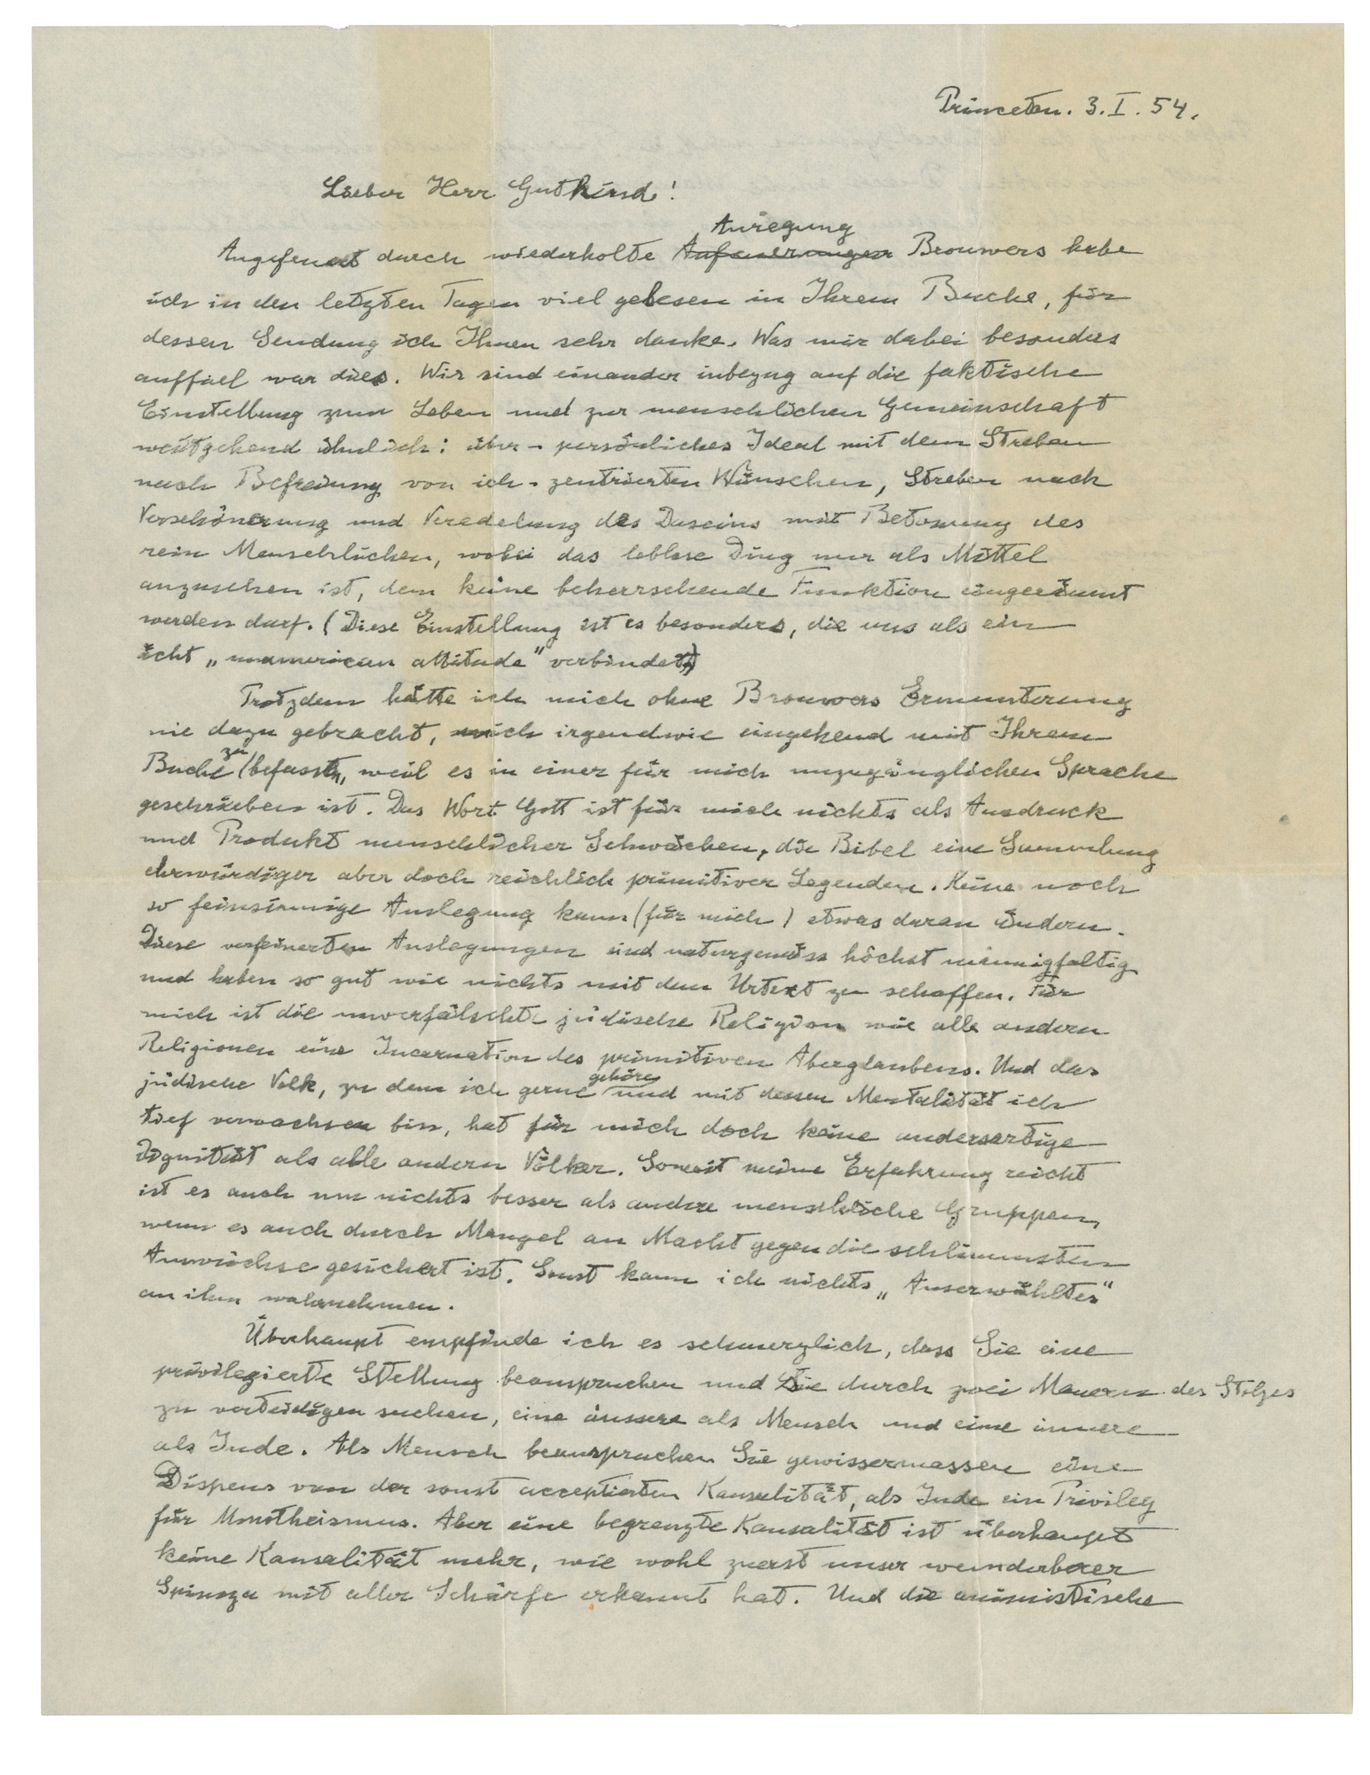 Princeton. 3. I. 54.
Lieber Herr Gutkind!
Anregung
Angefeuert durch wiederholte Anfeuerungen Brouwers habe
ich in den letzten Tagen viel gelesen in Ihrem Buche, für
dessen Sendung ich Ihnen sehr danke. Was mir dabei besonders
auffiel war dies. Wir sind einander inbezug auf die faktische
Einstellung zum Leben und zur menschlichen Gemeinschaft
weitgehend ähnlich: über-persönliches Ideal mit dem Streben
nach Befreiung von ich-zentrierten Wünschen, Streben nach
Verschönerung und Veredelung des Daseins mit Betonung des
rein Menschlichen, wobei das leblose Ding nur als Mittel
anzusehen ist, dem keine beherrschende Funktion eingeräumt
werden darf. (Diese Einstellung ist es besonders, die uns als ein
echt „unamerican attitude" verbindet)
Trotzdem hätte ich mich ohne Brouwers Ermunterung
nie dazu gebracht, mich irgendwie eingehend mit Ihrem
Buche zu befassen, weil es in einer für mich unzugänglichen Sprache
geschrieben ist. Das Wort Gott ist für mich nichts als Ausdruck
und Produkt menschlicher Schwächen, die Bibel eine Sammlung
ehrwürdiger aber doch reichlich primitiver Legenden. Keine noch
so feinsinnige Auslegung kann (für mich) etwas daran ändern.
Diese verfeinerten Auslegungen sind naturgemäss höchst mannigfaltig
und haben so gut wie nichts mit dem Urtext zu schaffen. Für
mich ist die unverfälschte jüdische Religion wie alle andern
Religionen eine Incarnation des primitiven Aberglaubens. Und das
jüdische Volk, zu dem ich gerne gehöre und mit dessen Mentalität ich
tief verwachsen bin, hat für mich doch keine andersartige
Dignität als alle andern Völker. Soweit meine Erfahrung reicht
ist es auch um nichts besser als andere menschliche Gruppen,
wenn es auch durch Mangel an Macht gegen die schlimmsten
Auswüchse gesichert ist. Sonst kann ich nichts „Auserwähltes"
an ihm wahrnehmen.
Überhaupt empfinde ich es schmerzlich, dass Sie eine
privilegierte Stellung beanspruchen und sie durch zwei Mauern des Stolzes
zu verteidigen suchen, eine äussere als Mensch und eine innere
als Jude. Als Mensch beanspruchen Sie gewissermassen eine
Dispens von der sonst acceptierten Kausalität, als Jude ein Privileg
für Monotheismus. Aber eine begrenzte Kausalität ist überhaupt
keine Kausalität mehr, wie wohl zuerst unser wunderbarer
Spinoza mit aller Schärfe erkannt hat. Und die animistische